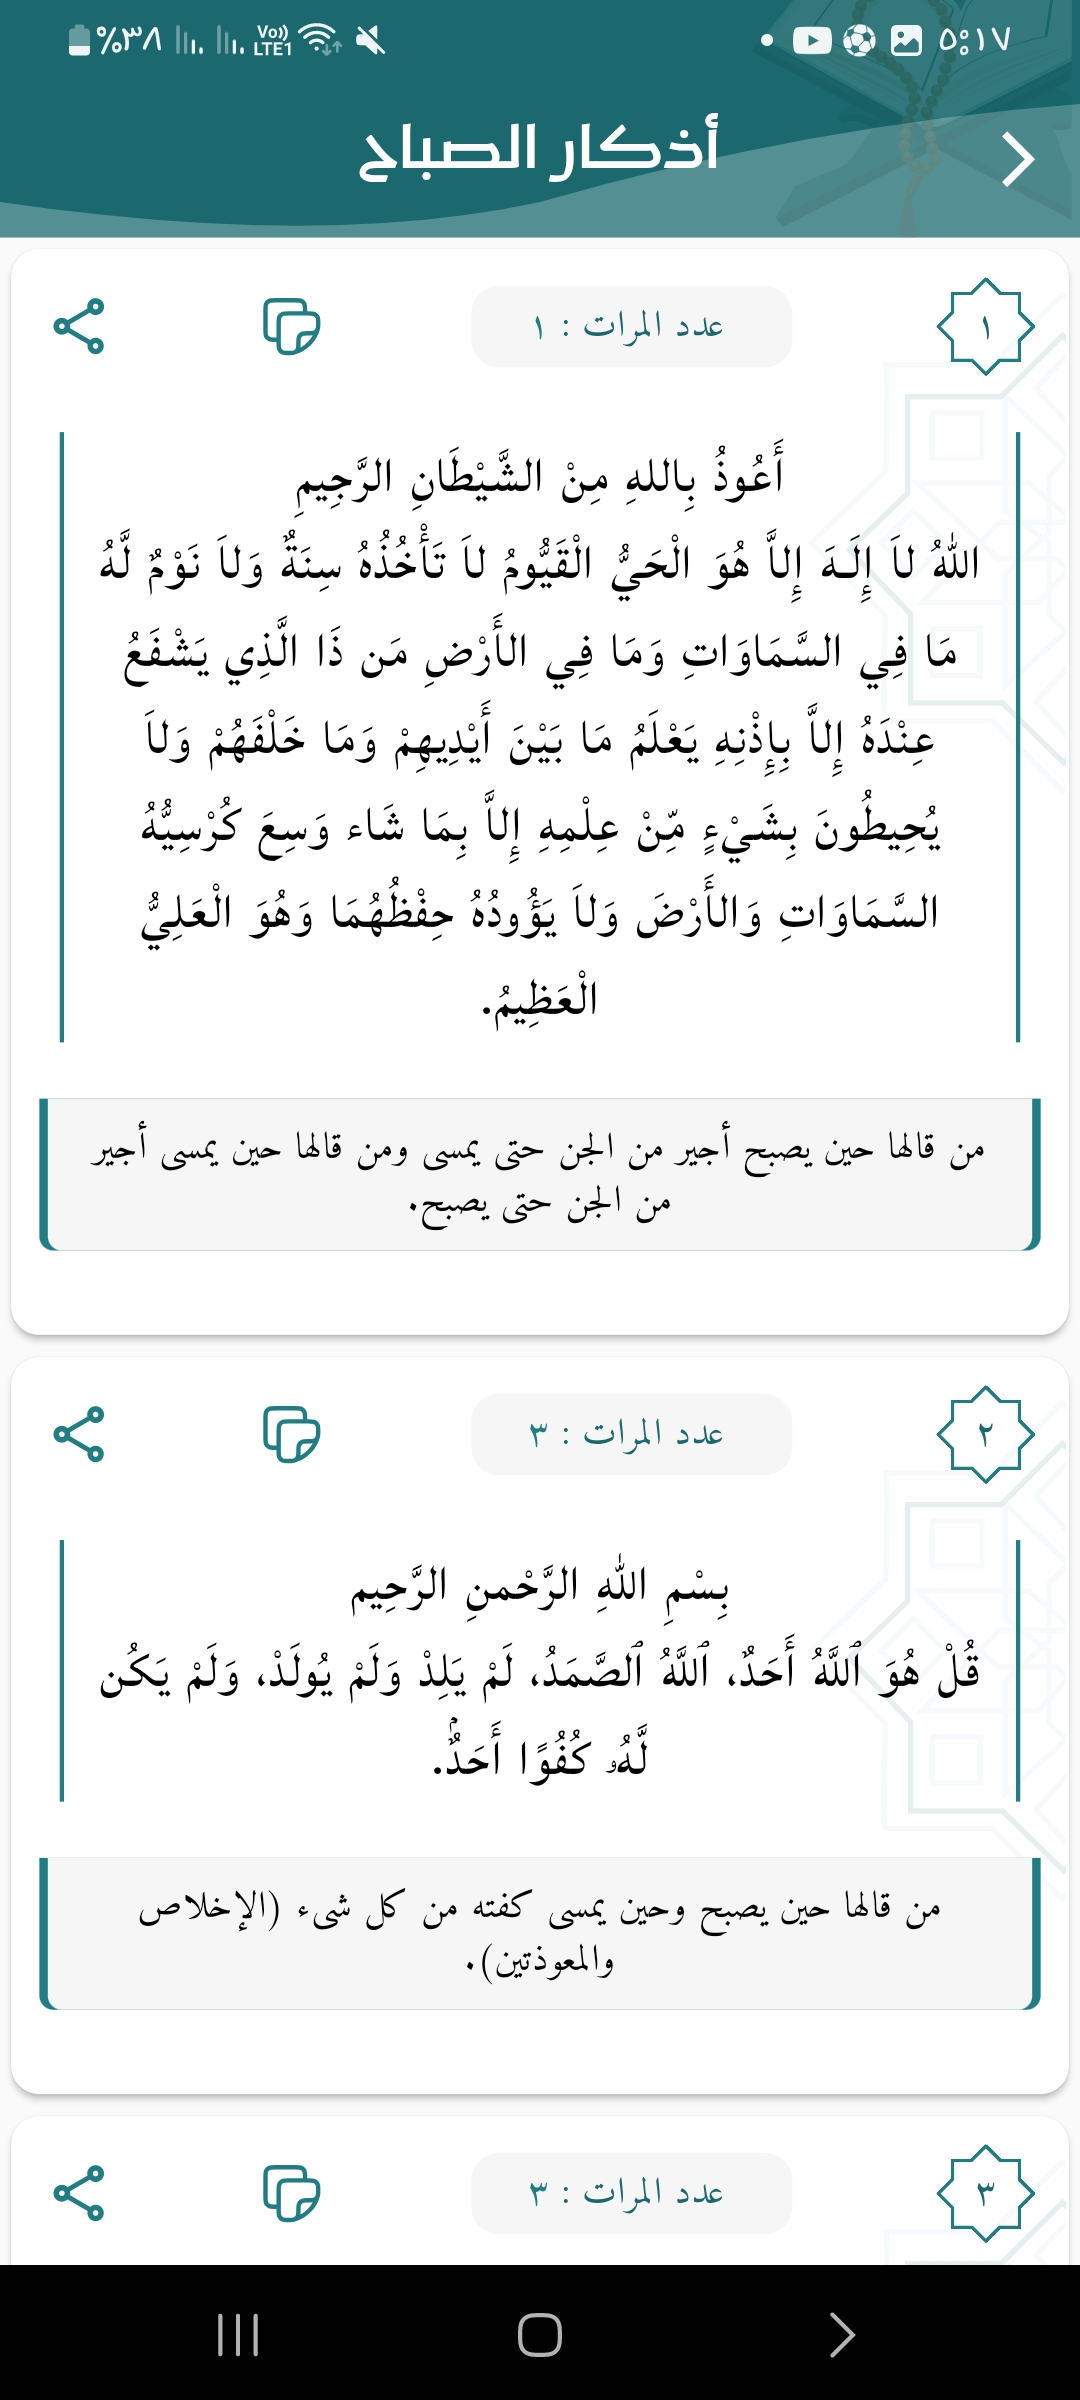 ٥:١٧
Vo)) LTE1 %٣٨
أذكار الصباح
١
عدد المرات : ١
أَعُوذُ بِاللهِ مِنْ الشَّيْطَانِ الرَّجِيمِ
اللّهُ لاَ إِلَـهَ إِلاَّ هُوَ الْحَيُّ الْقَيُّومُ لاَ تَأْخُذُهُ سِنَةٌ وَلاَ نَوْمٌ لَّهُ
مَا فِي السَّمَاوَاتِ وَمَا فِي الأَرْضِ مَن ذَا الَّذِي يَشْفَعُ
عِنْدَهُ إِلاَّ بِإِذْنِهِ يَعْلَمُ مَا بَيْنَ أَيْدِيهِمْ وَمَا خَلْفَهُمْ وَلاَ
يُحِيطُونَ بِشَيْءٍ مِّنْ عِلْمِهِ إِلاَّ بِمَا شَاء وَسِعَ كُرْسِيُّهُ
السَّمَاوَاتِ وَالأَرْضَ وَلاَ يَؤُودُهُ حِفْظُهُمَا وَهُوَ الْعَلِيُّ
الْعَظِيمُ.
من قالها حين يصبح أجير من الجن حتى يمسى ومن قالها حين يمسى أجير
من الجن حتى يصبح.
٢
عدد المرات : ٣
بِسْمِ اللهِ الرَّحْمنِ الرَّحِيم
قُلْ هُوَ ٱللَّهُ أَحَدٌ، ٱللَّهُ ٱلصَّمَدُ، لَمْ يَلِدْ وَلَمْ يُولَدْ، وَلَمْ يَكُن
لَّهُۥ كُفُوًا أَحَدٌۢ.
من قالها حين يصبح وحين يمسى كفته من كل شىء (الإخلاص
والمعوذتين).
٣
عدد المرات : ٣